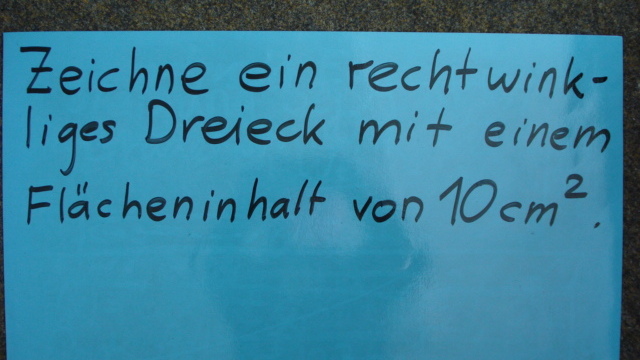 Zeichne ein rechtwink-
liges Dreieck mit einem
Flächeninhalt von 10cm².